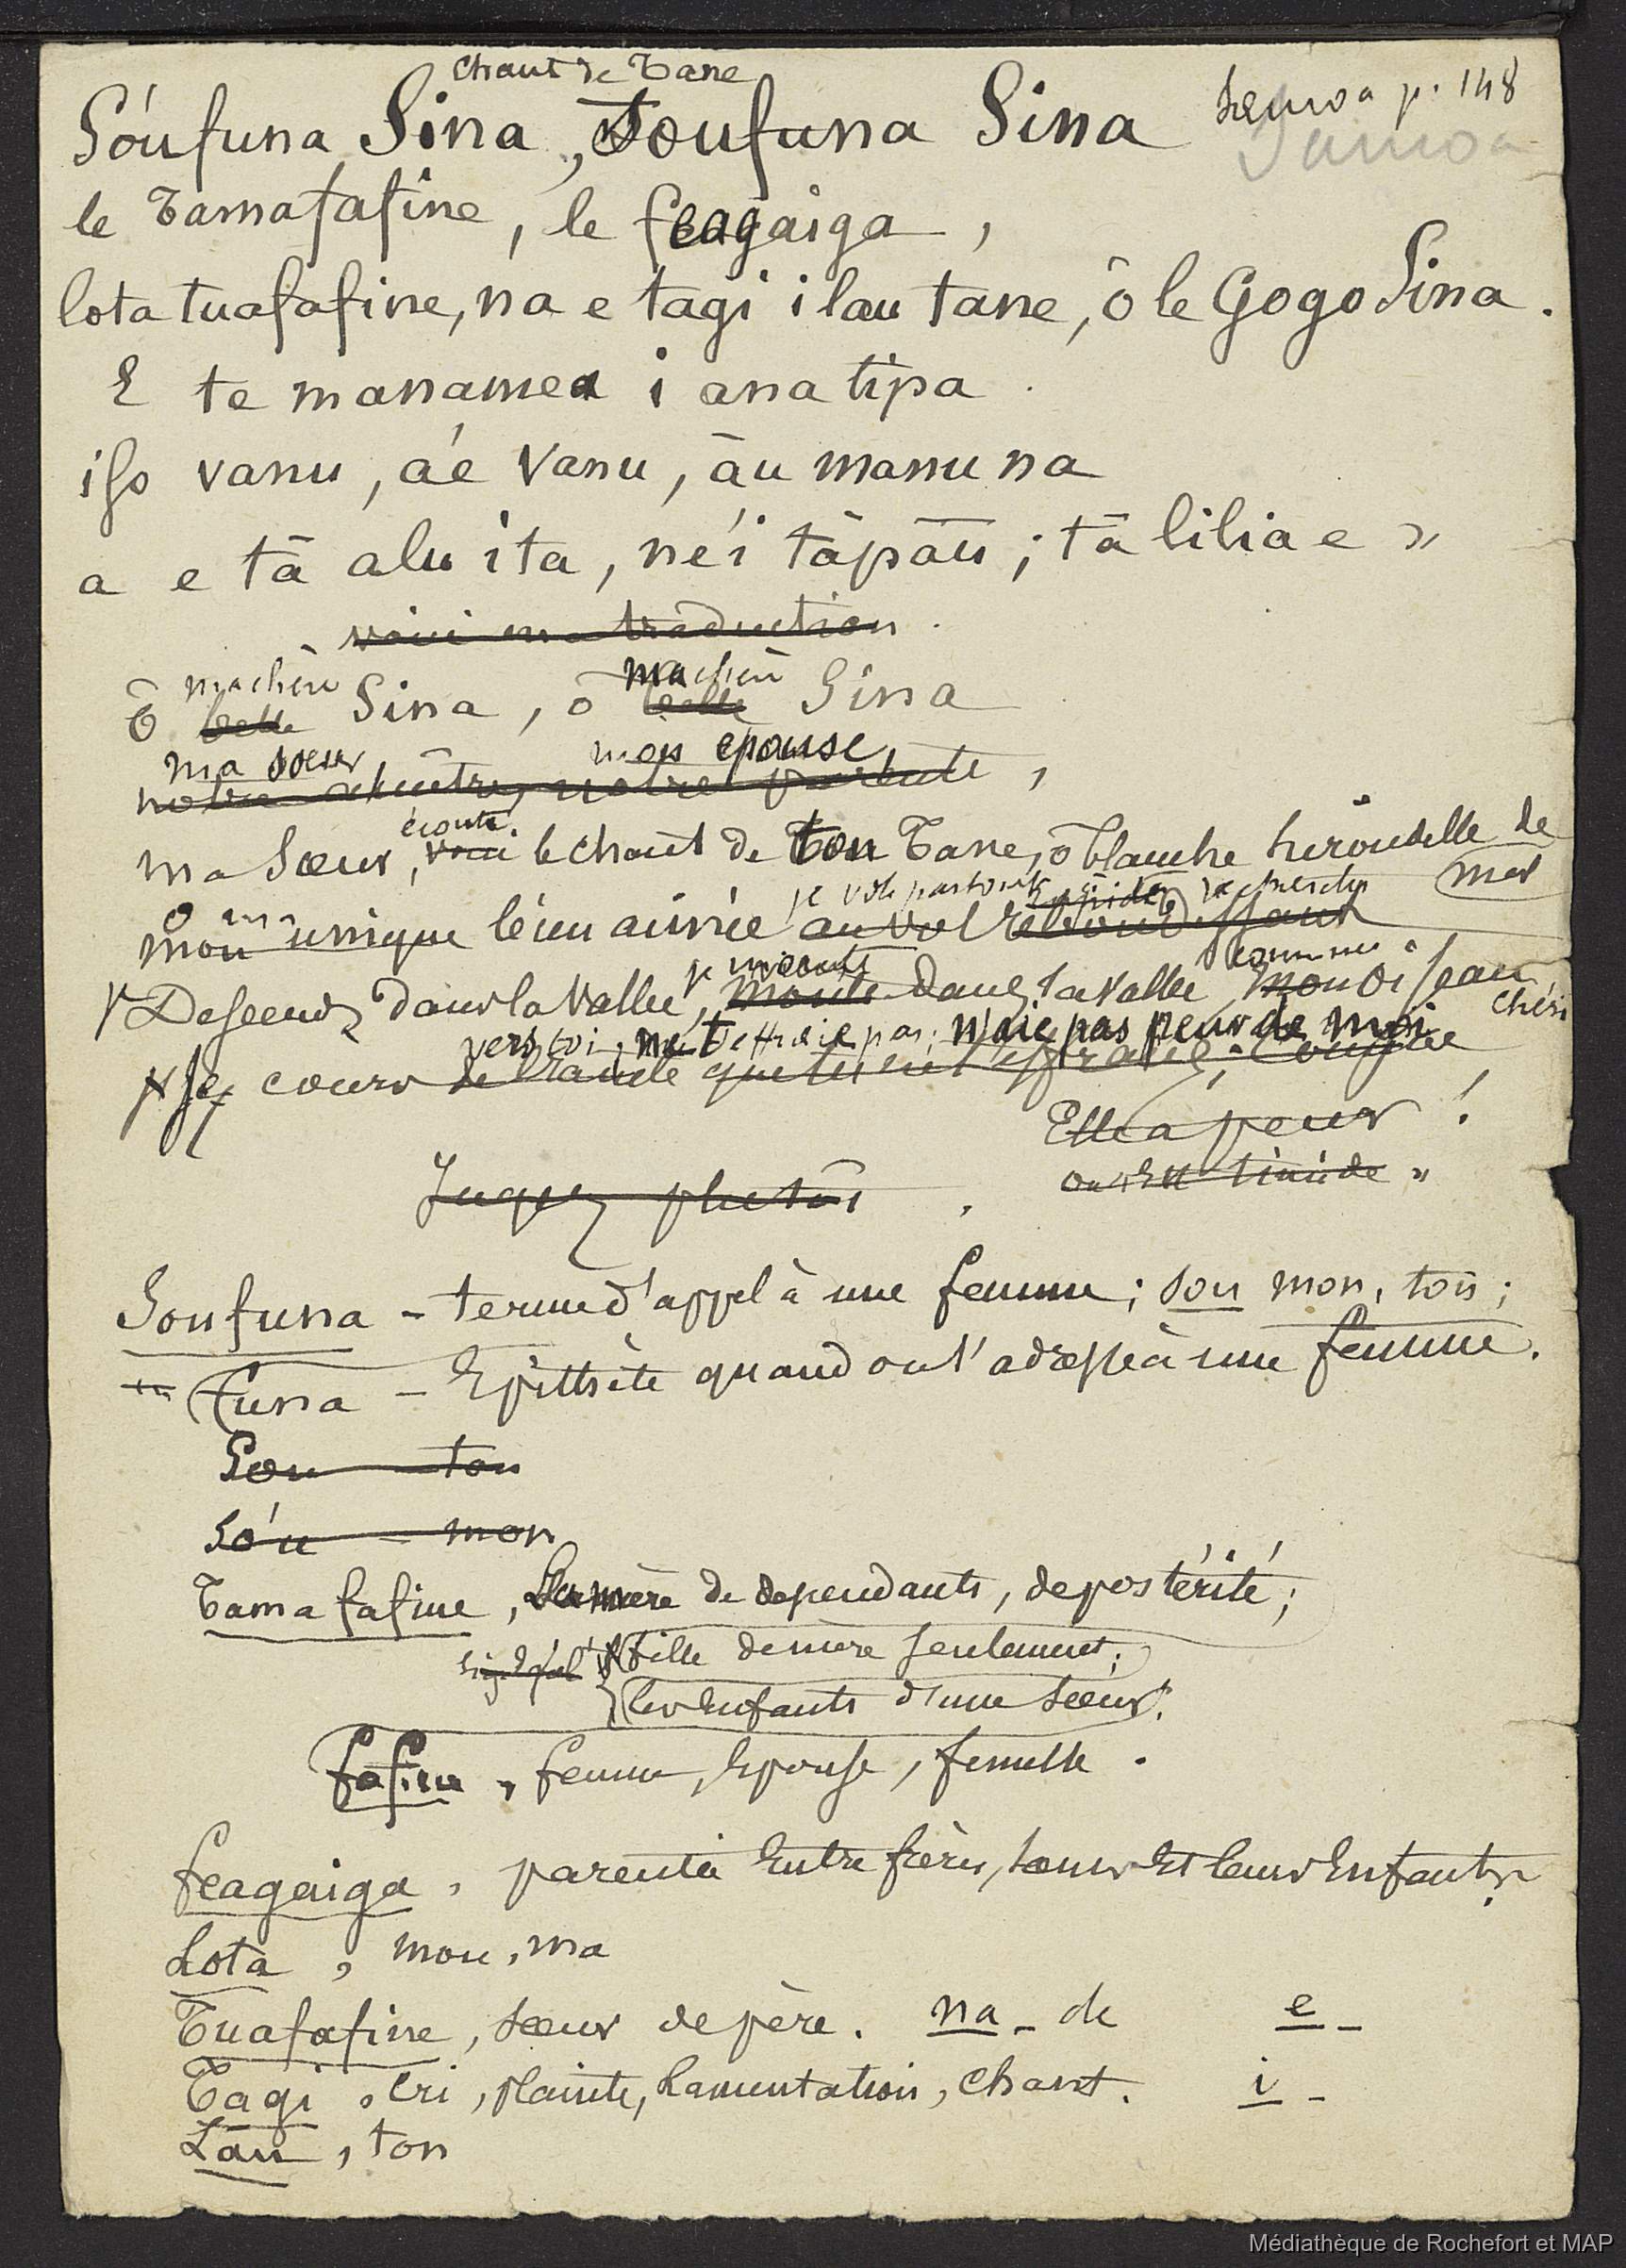 Chant de Tane
Samoa p. 148
Samoa
Sóufuna Sina, Soufuna Sina
le Tamafafine, le feagaiga,
lota tuafafine, na e tagi i lau tane, ô le Gogo Sina.
E te manamea i ana tipa.
ifo vanu, áe vanu, āu manu na
a e tā alu ita, né'i tāpāu; tā lilia e »
voici ma traduction.
ma chère ma chère
Ô belle Sina, ô belle Sina
ma soeur mon épouse
notre parenté,
écoute
ma Soeur, voici le chant de ton Tane, ô blanche hirondelle de mer
je vole partout rapide te chercher
Ô mon unique bien aimée au vol rebondissant
je monte comme
Descends dans la vallée, monte dans la vallée mon oiseau chéri
vers toi, ne t'effraie pas; n'aie pas peur de moi
Je cours
Elle a peur!
ou est timide »
Jugez plutôt.
Soufuna - terme d'appel à une femme; sou mon, ton;
funa - Épithète quand on s'adresse à une femme.
Sou ton
So'u - mon
Tamafafine, La mère de dependants, de postérité;
fille de mère seulement;
les enfants d'une soeur.
fafine, femme, épouse, femelle.
feagaiga, parenté entre frères, soeurs et leurs enfants.
Lota, mon, ma
Tuafafine, soeur de père. na - de e -
Tagi, cri, plainte, Lamentation, chant. i -
Lau, ton
Médiathèque de Rochefort et MAP